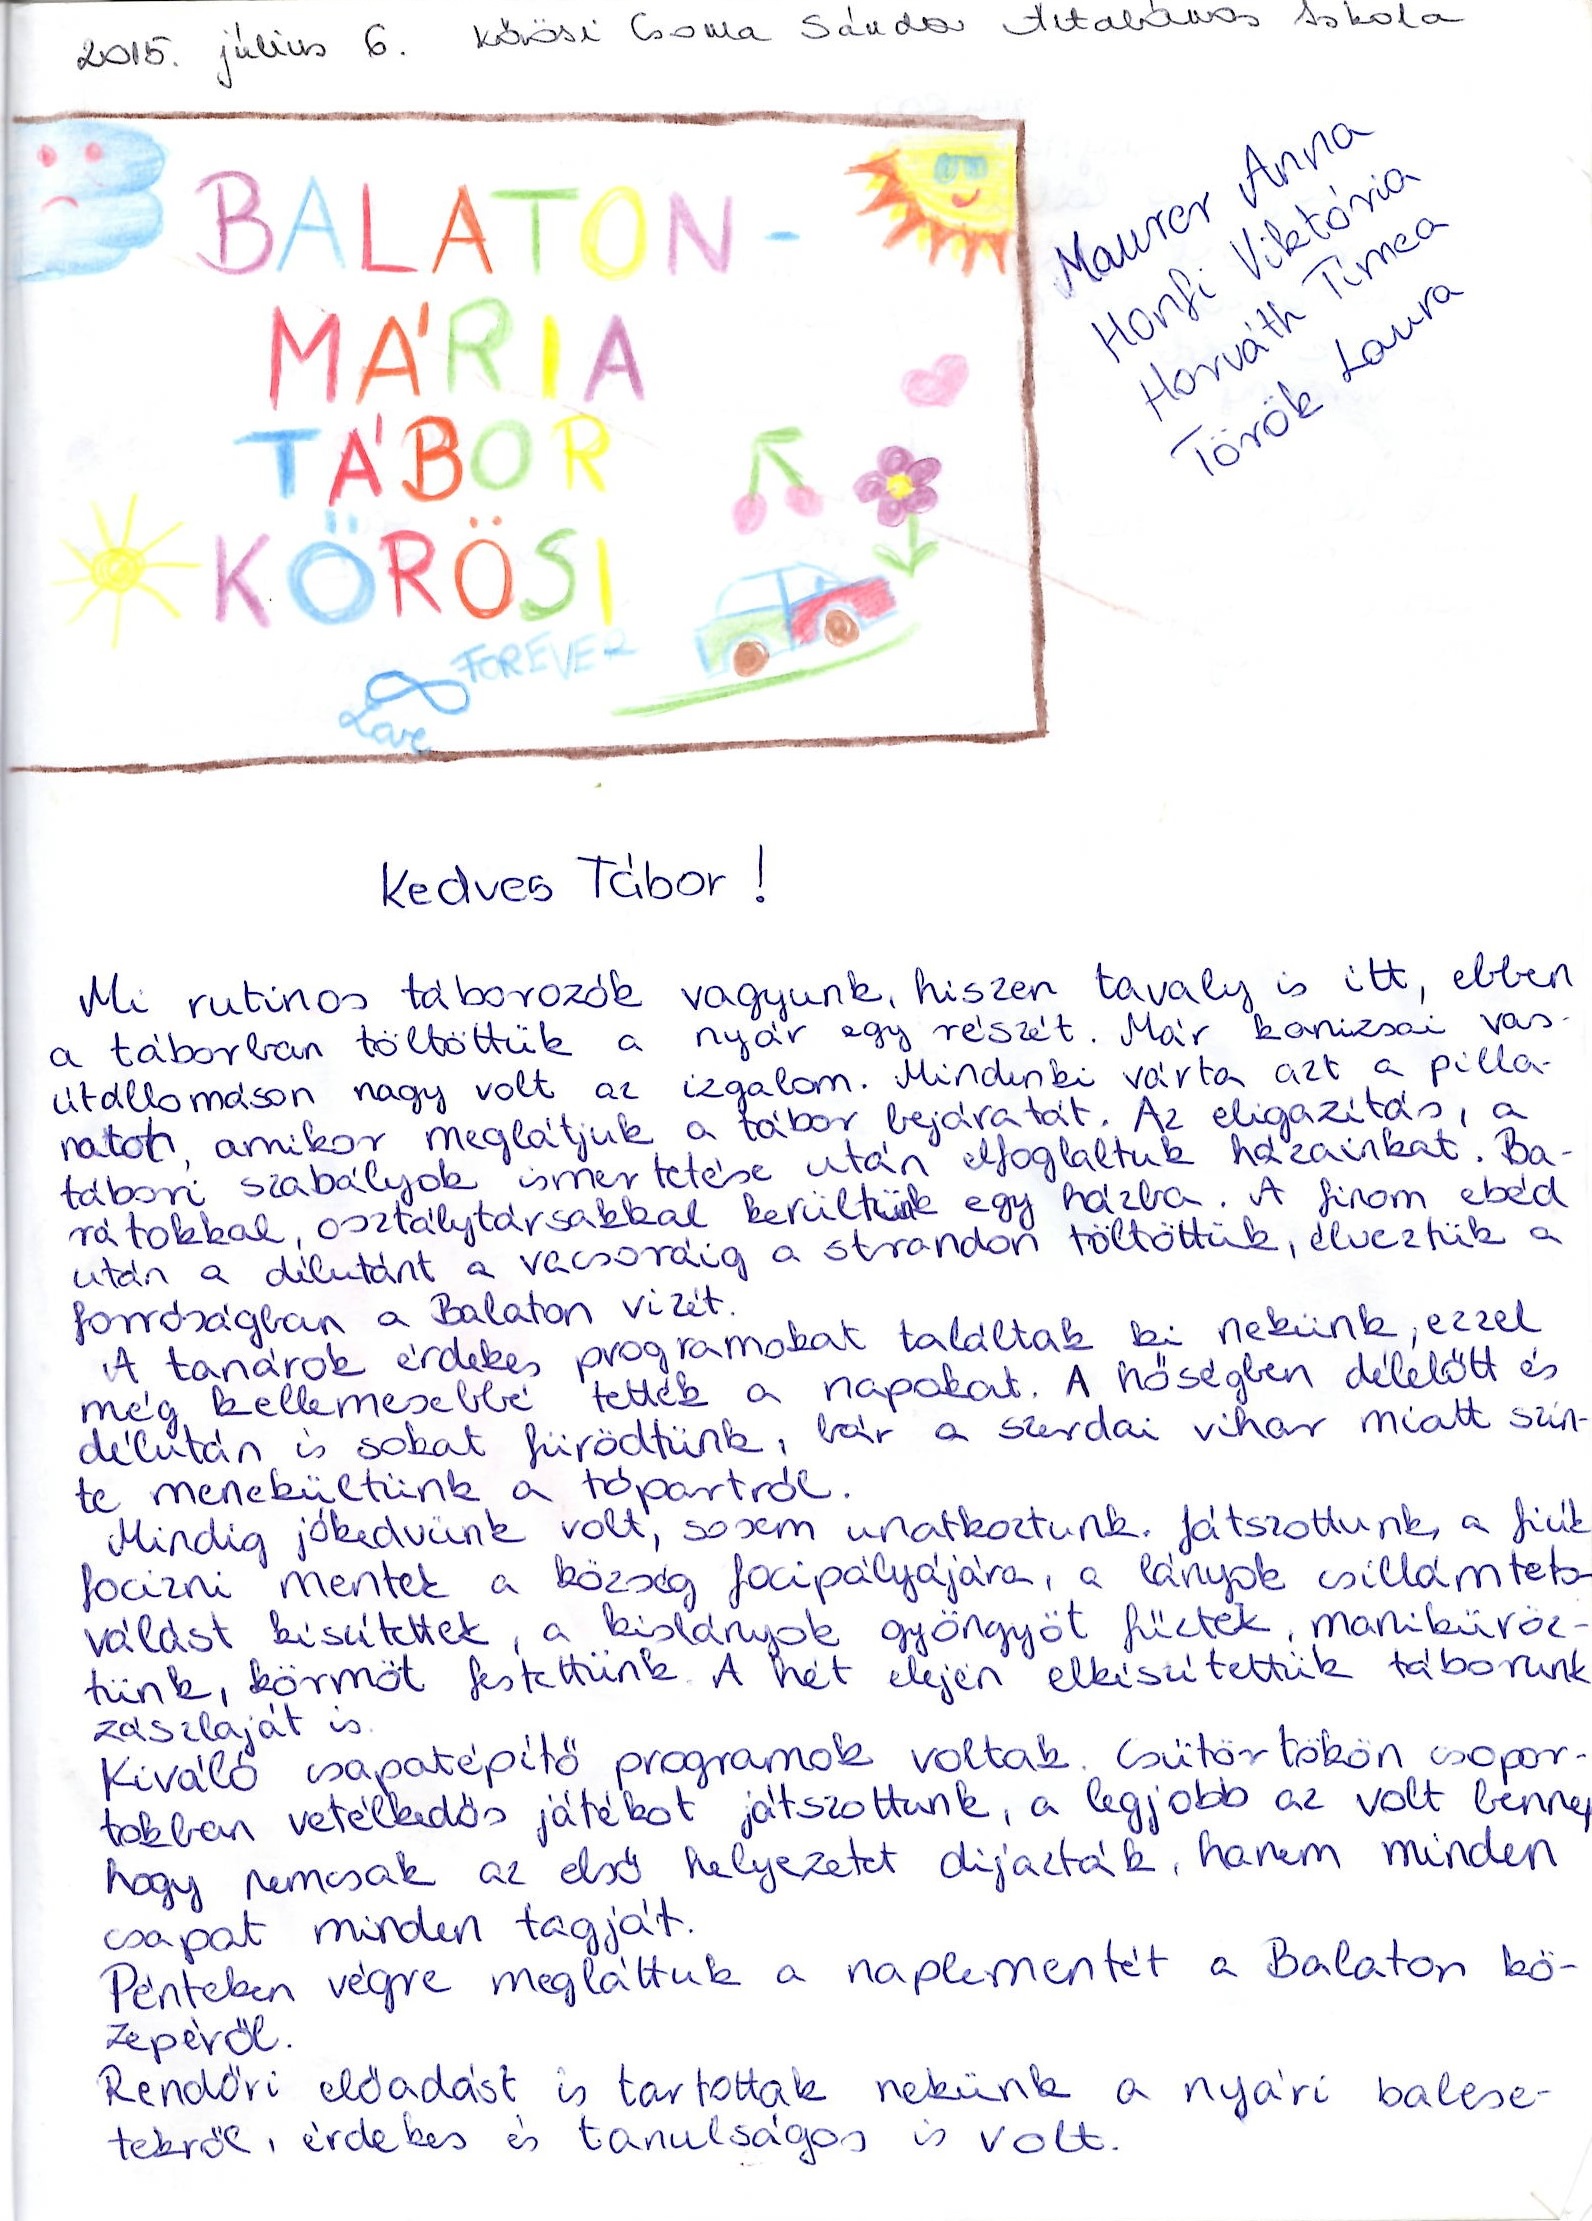 2015. július 6. Kőrösi Csoma Sándor Általános Iskola
BALATON-
MÁRIA
TÁBOR
KÖRÖSI
FOREVER
Love
Maurer Anna
Honfi Viktória
Horváth Tímea
Török Laura
Kedves Tábor!
Mi rutinos táborozók vagyunk, hiszen tavaly is itt, ebben
a táborban töltöttük a nyár egy részét. Már kanizsai vas-
útállomáson nagy volt az izgalom. Mindenki várta azt a pilla-
natot, amikor meglátjuk a tábor bejáratát. Az eligazítás, a
tábori szabályok ismertetése után elfoglaltuk házainkat. Ba-
rátokkal, osztálytársakkal kerültünk egy házba. A finom ebéd
után a délutánt a vacsoráig a strandon töltöttük, élveztük a
forróságban a Balaton vizét.
A tanárok érdekes programokat találtak ki nekünk, ezzel
még kellemesebbé tették a napokat. A hőségben délelőtt és
délután is sokat fürödtünk, bár a szerdai vihar miatt szin-
te menekültünk a tópartról.
Mindig jókedvünk volt, sosem unatkoztunk. Játszottunk, a fiúk
focizni mentek a község focipályájára, a lányok csillámteto-
válást készítettek, a kislányok gyöngyöt fűztek, manikűröz-
tünk, körmöt festettünk. A hét elején elkészítettük táborunk
zászlaját is.
Kiváló csapatépítő programok voltak. Csütörtökön csopor-
tokban vetélkedős játékot játszottunk, a legjobb az volt benne,
hogy nemcsak az első helyezetet díjazták, hanem minden
csapat minden tagját.
Pénteken végre megláttuk a naplementét a Balaton kö-
zepéről.
Rendőri előadást is tartottak nekünk a nyári balese-
tekről, érdekes és tanulságos is volt.